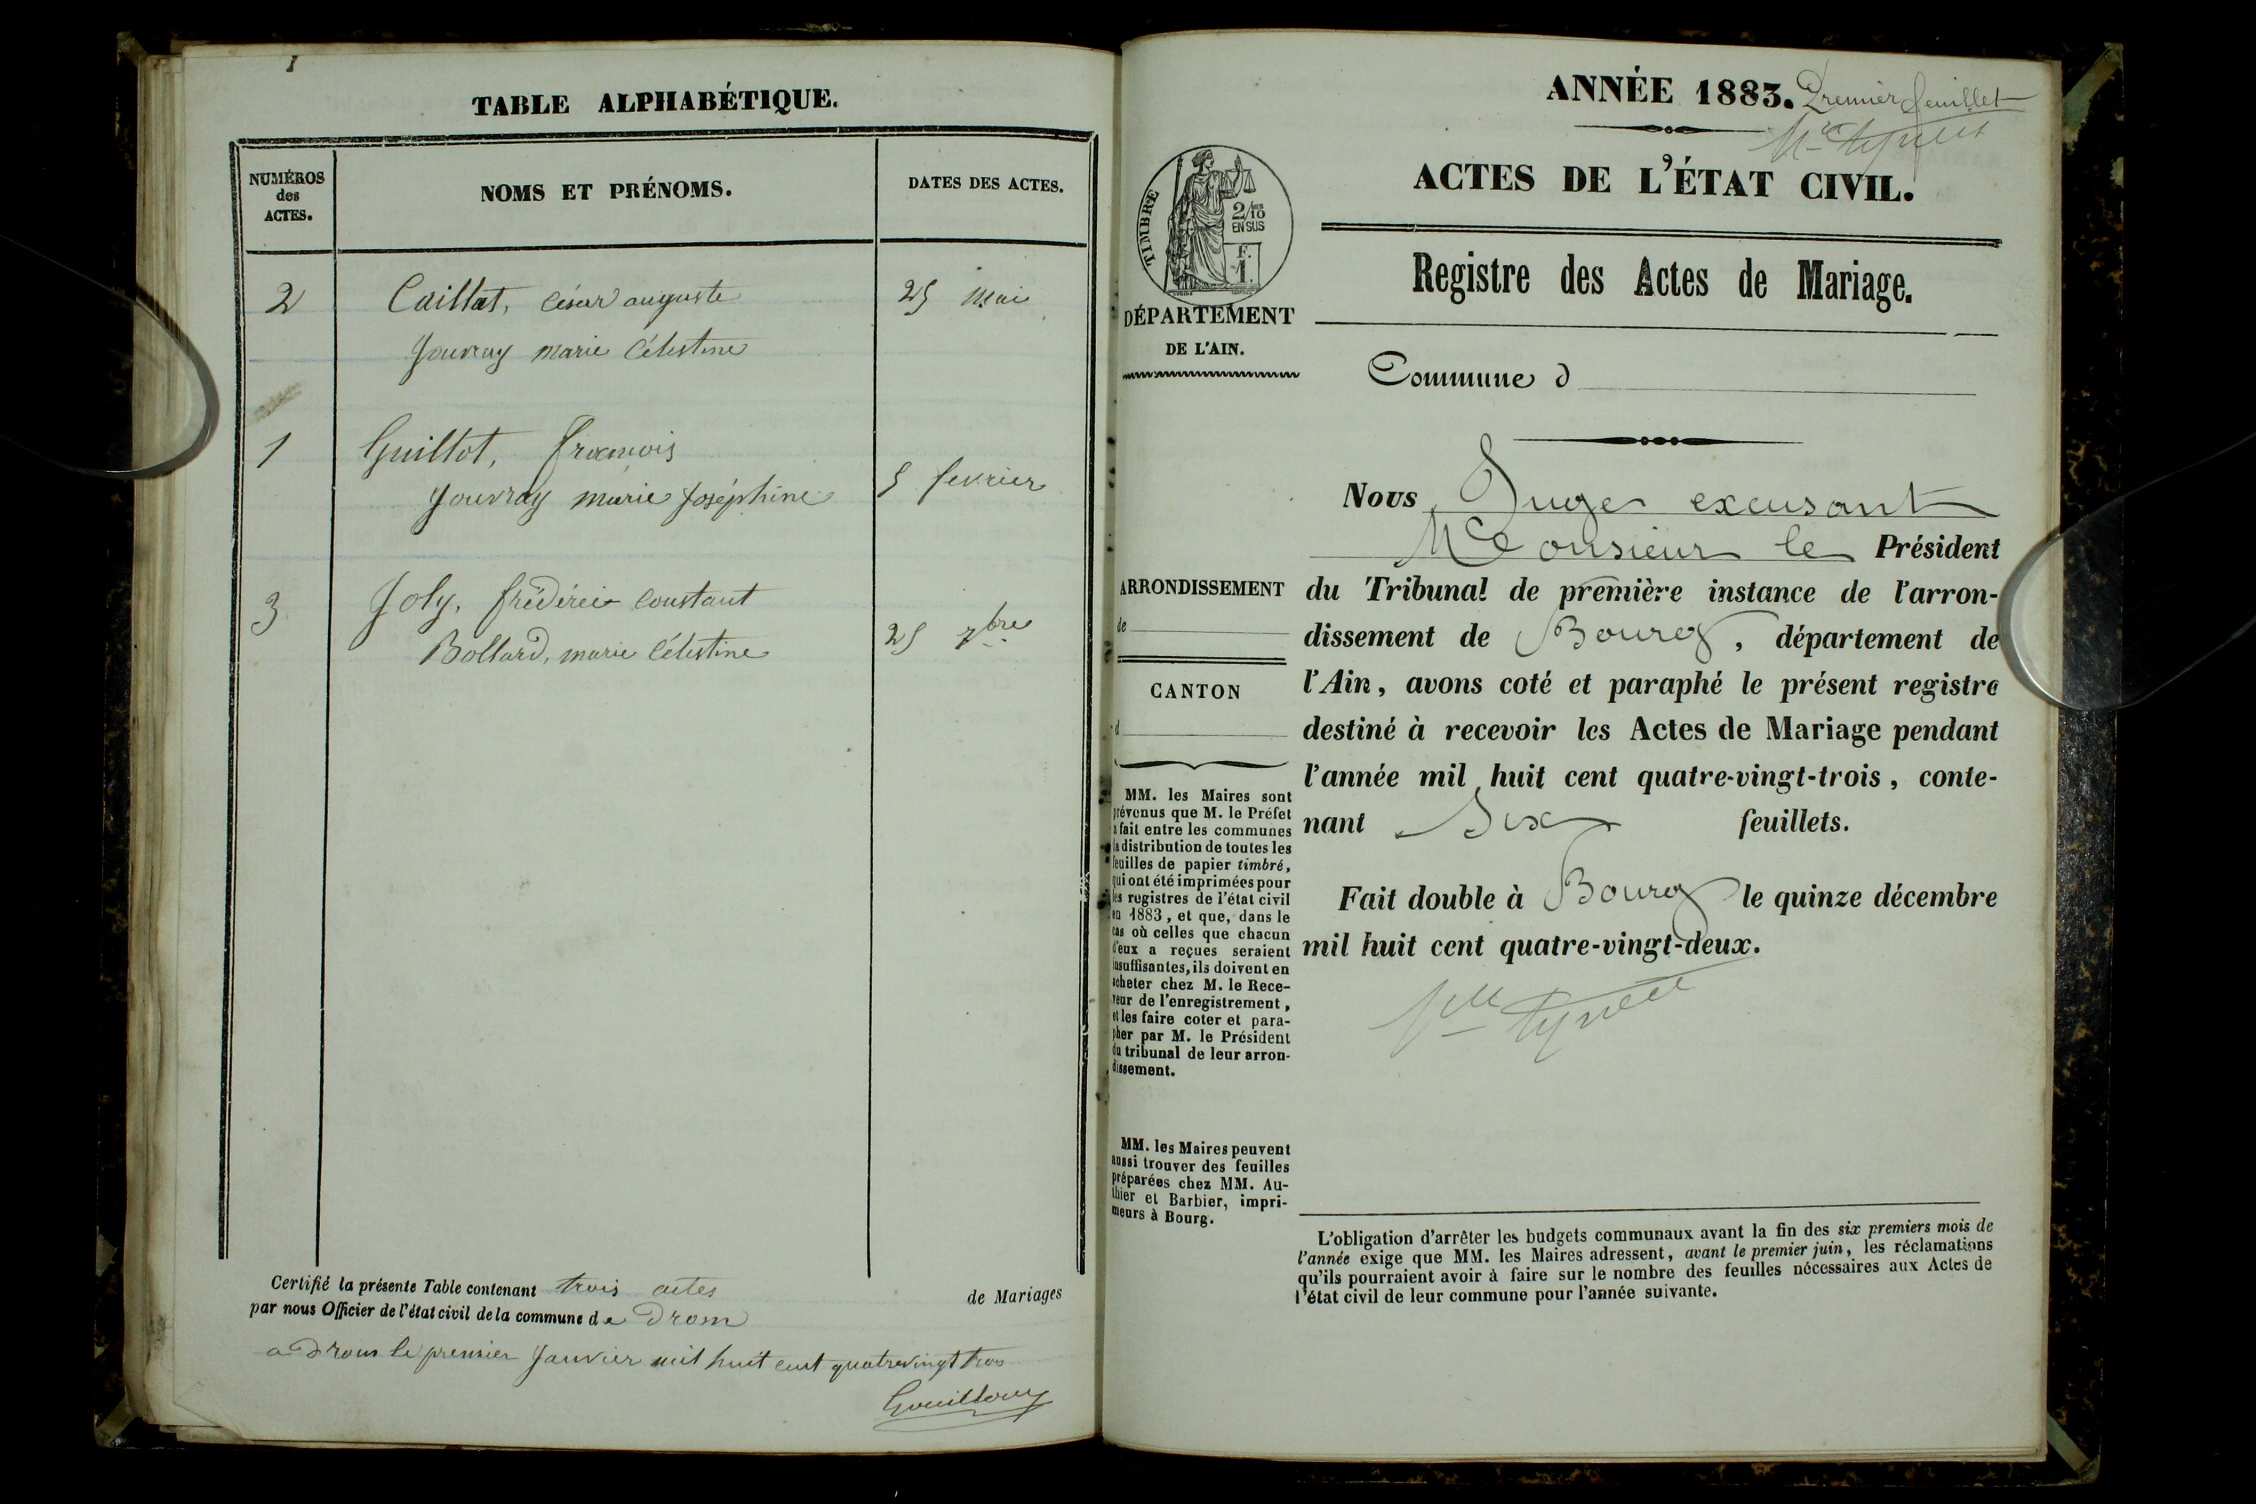 TABLE ALPHABÉTIQUE.
NUMÉROS
des
ACTES.
NOMS ET PRÉNOMS.
DATES DES ACTES.
2 Caillat, César auguste 25 mai
Jouvray marie Célestine
1 Guillot, françois
Jouvray marie Joséphine 5 fevrier
3 Joly, frédéric constant
Bollard, marie Célestine 25 7bre
Certifié la présente Table contenant trois actes de Mariages
par nous Officier de l'état civil de la commune de Drom
a Drom le premier Janvier mil huit cent quatre vingt trois
ANNÉE 1883. Premier feuillet
ACTES DE L'ÉTAT CIVIL.
TIMBRE
2/10
EN SUS
F.
1.
Registre des Actes de Mariage.
DÉPARTEMENT
DE L'AIN.
Commune d
Nous Juge excusant
Monsieur le Président
du Tribunal de première instance de l'arron-
dissement de Bourg, département de
l'Ain, avons coté et paraphé le présent registre
destiné à recevoir les Actes de Mariage pendant
l'année mil huit cent quatre-vingt-trois, conte-
nant Six feuillets.
Fait double à Bourg le quinze décembre
mil huit cent quatre-vingt-deux.
ARRONDISSEMENT
de
CANTON
d
MM. les Maires sont
prévenus que M. le Préfet
a fait entre les communes
la distribution de toutes les
feuilles de papier timbré,
qui ont été imprimées pour
les registres de l'état civil
en 1883, et que, dans le
cas où celles que chacun
d'eux a reçues seraient
insuffisantes, ils doivent en
acheter chez M. le Rece-
veur de l'enregistrement,
et les faire coter et para-
pher par M. le Président
du tribunal de leur arron-
dissement.
MM. les Maires peuvent
aussi trouver des feuilles
préparées chez MM. Au-
thier et Barbier, impri-
meurs à Bourg.
L'obligation d'arrêter les budgets communaux avant la fin des six premiers mois de
l'année exige que MM. les Maires adressent, avant le premier juin, les réclamations
qu'ils pourraient avoir à faire sur le nombre des feuilles nécessaires aux Actes de
l'état civil de leur commune pour l'année suivante.